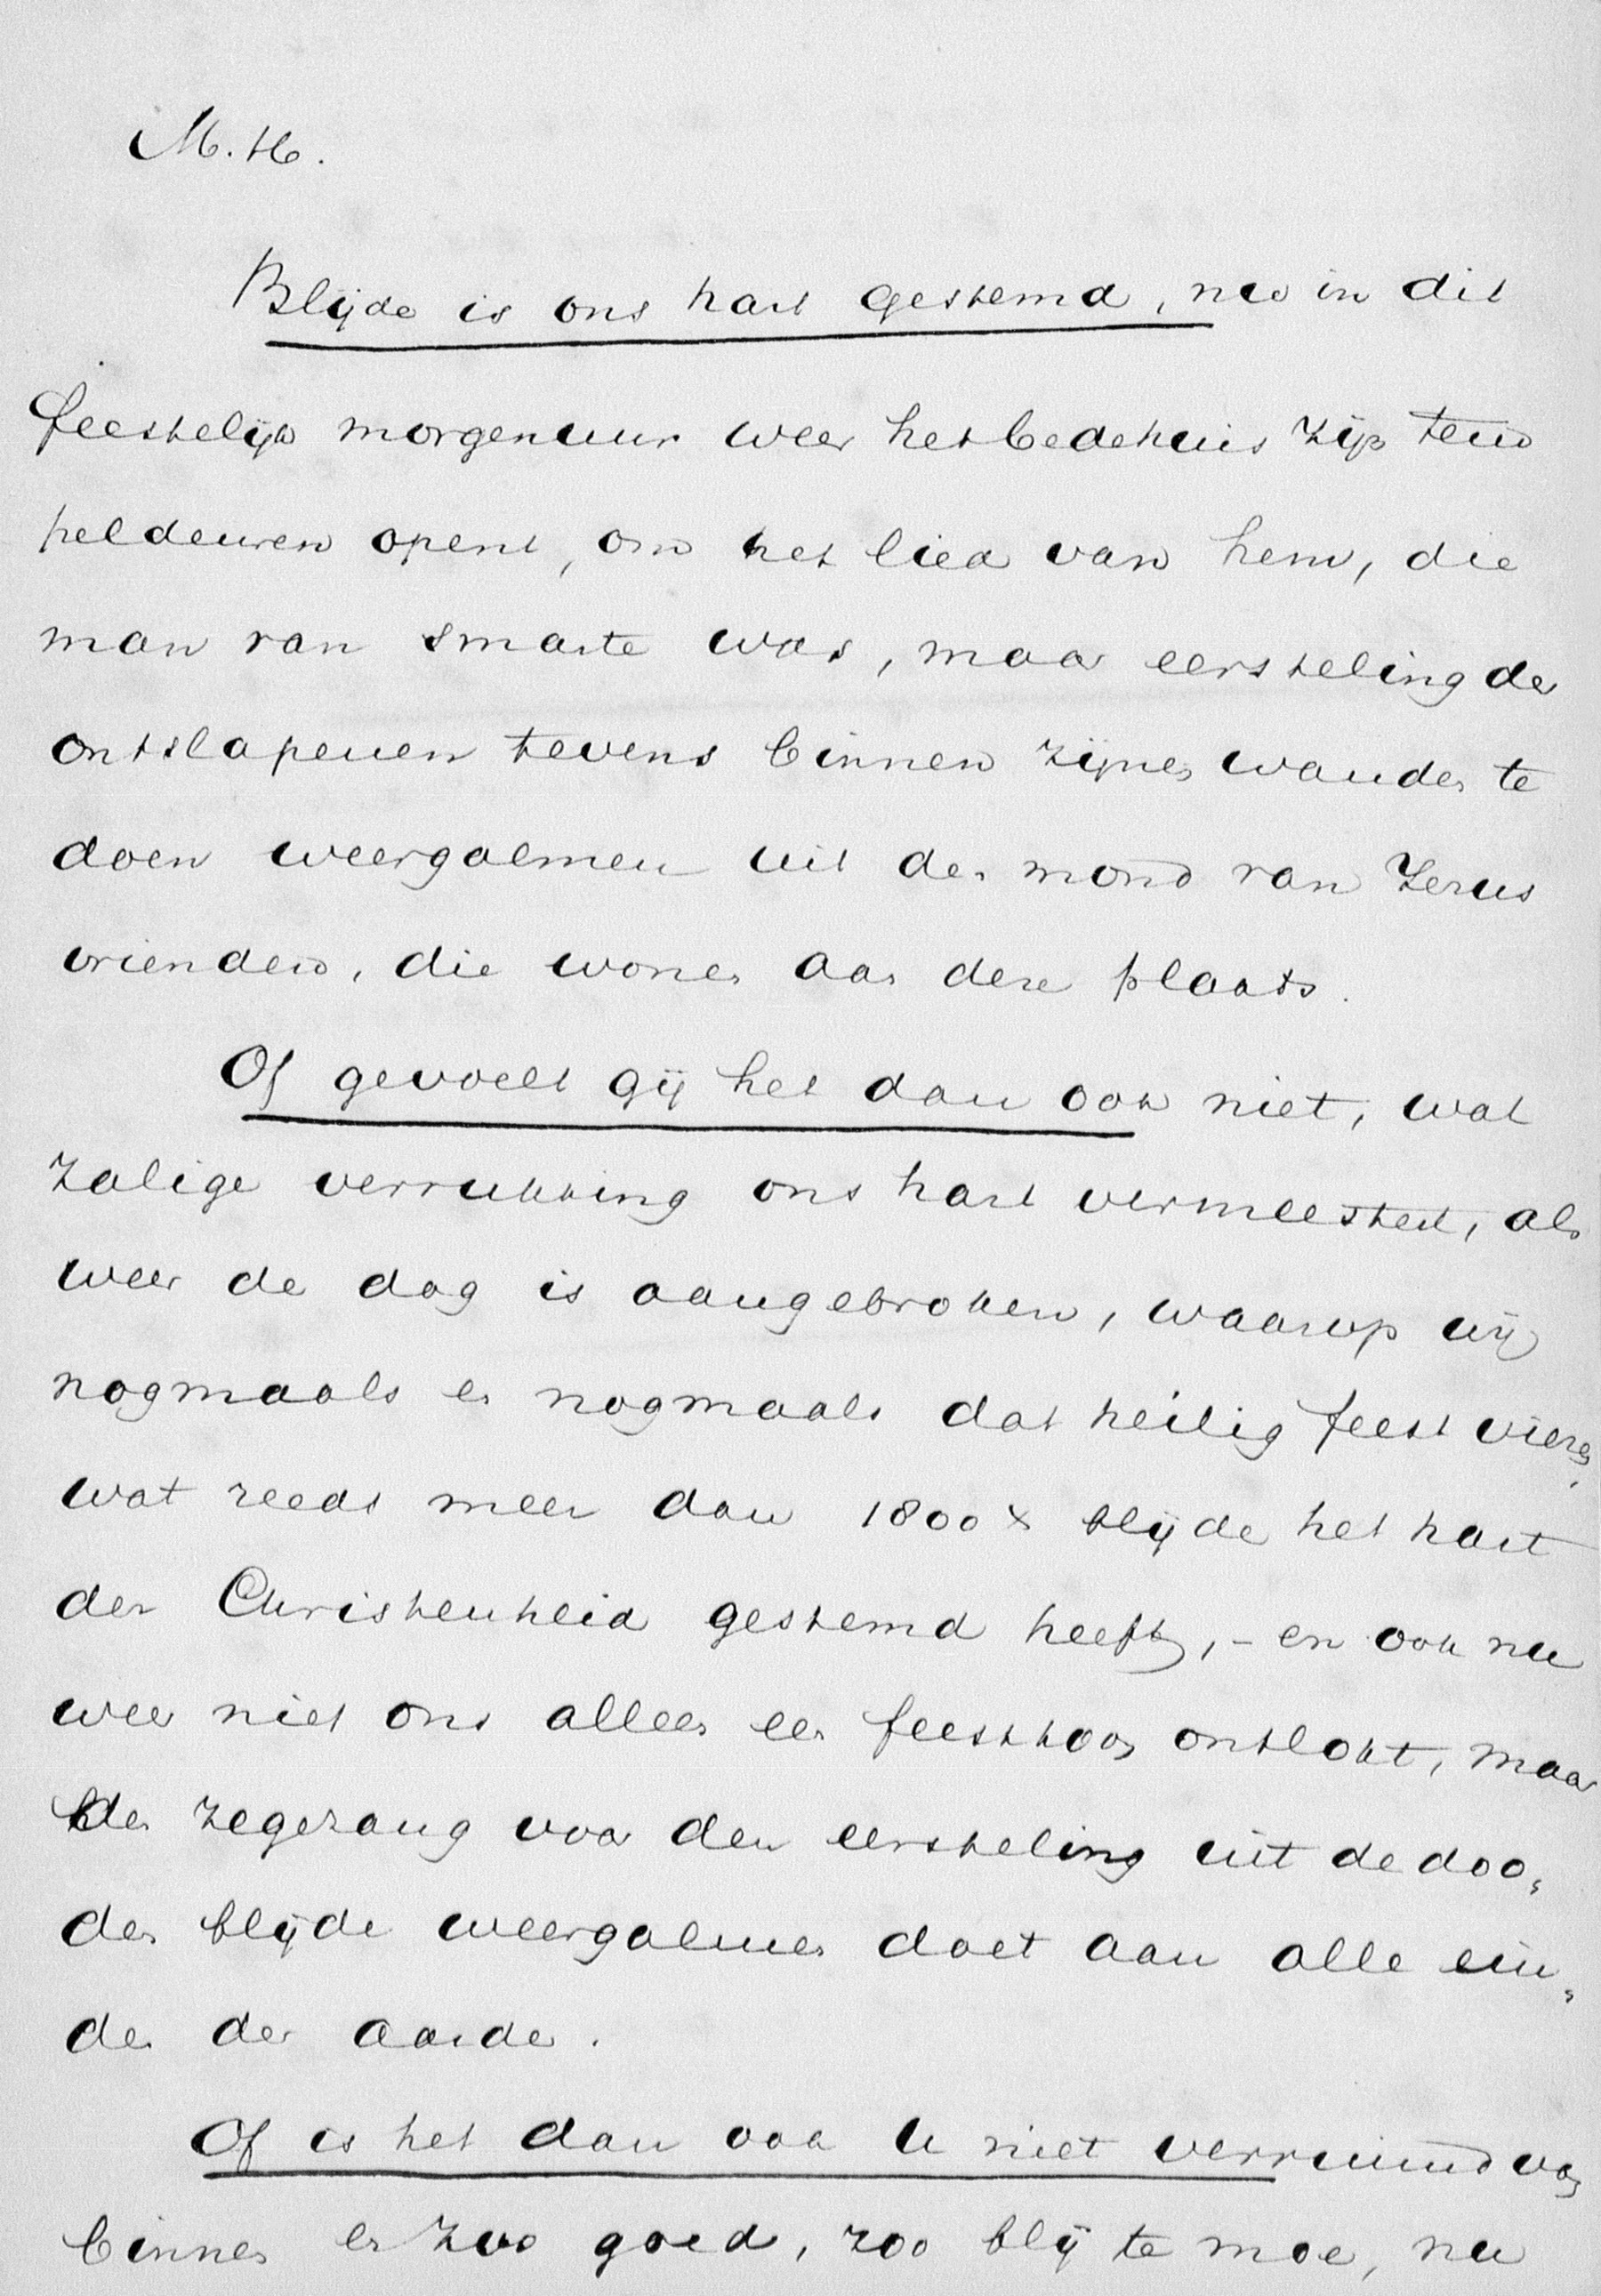 M. H.
Blijde is ons hart gestemd, nu in dit
feestelijk morgenuur weer het bedehuis zijn tem
peldeuren opent, om het lied van hem, die
man van smarte was, maar eersteling der
ontslapenen tevens binnen zijnen wanden te
doen weergalmen uit den mond van Jezus
vrienden, die wonen aan deze plaats.
Of gevoelt gij het dan ook niet, wat
zalige verrukking ons hart vermeestert, als
weer de dag is aangebroken, waarop wij
nogmaals en nogmaals dat heilig feest vieren,
wat reeds meer dan 1800 x blijde het hart
der Christenheid gestemd heeft, - en ook nu
weer niet ons alleen een feestkoor ontlokt, maar
den zegezang voor den eersteling uit de doo„
den blijde weergalmen doet aan alle ein„
den der aarde.
Of is het dan ook U niet verruimd van
binnen en zoo goed, zoo blij te moe, nu